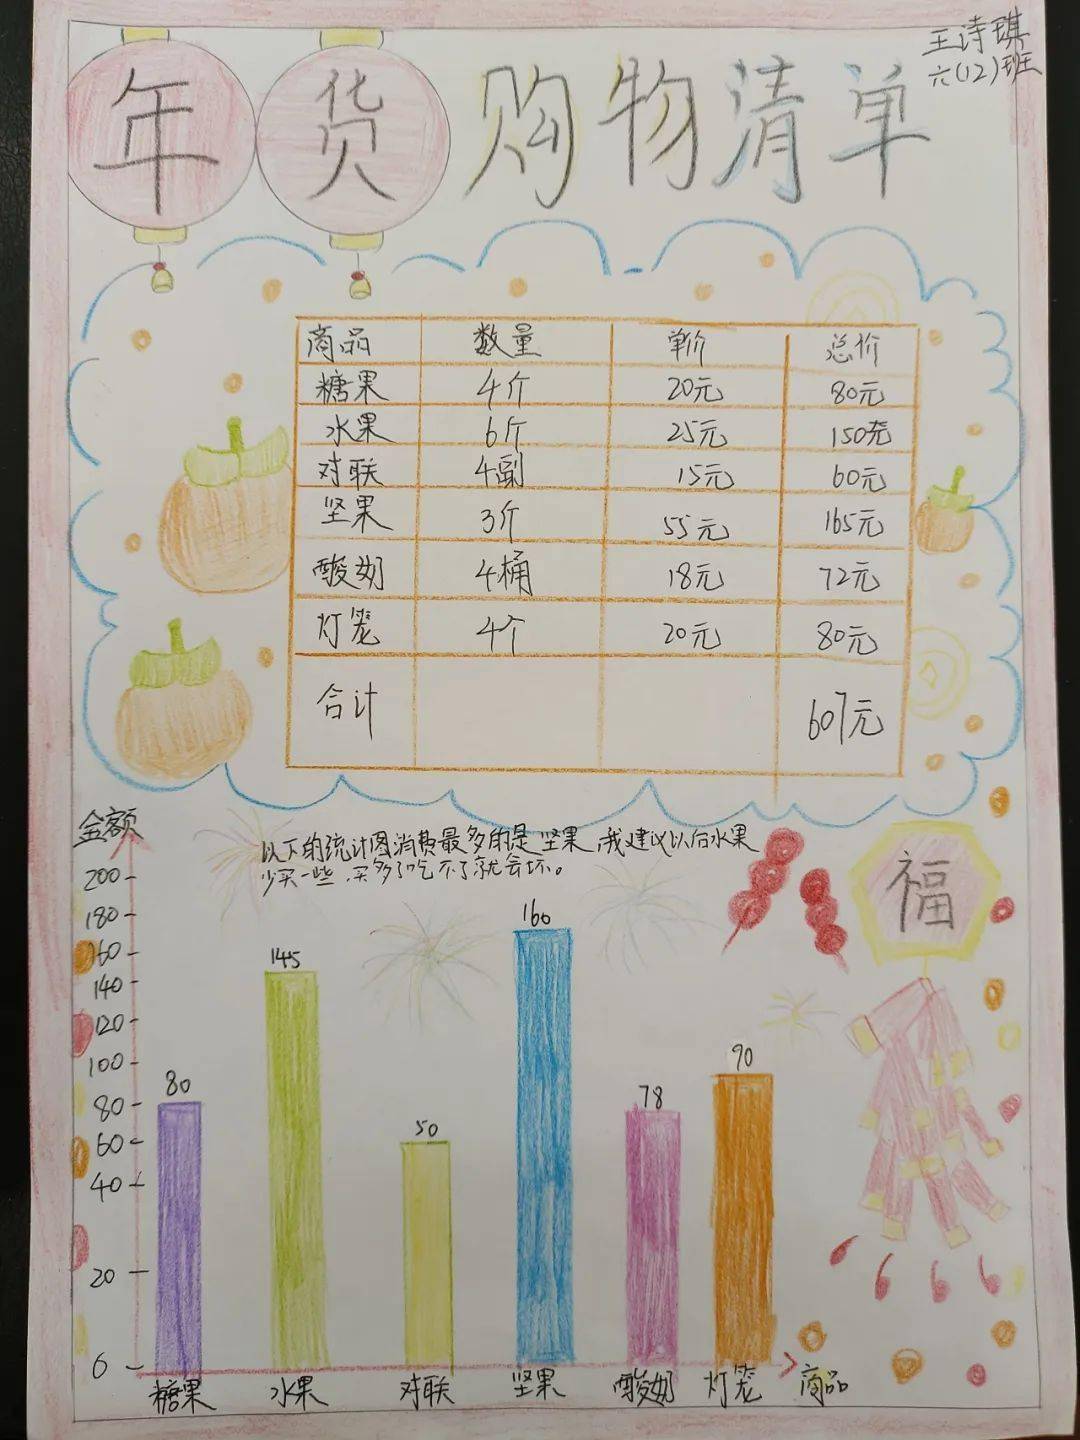 王诗琪
六(12)班
年货购物清单
商品 数量 单价 总价
糖果 4斤 20元 80元
水果 6斤 25元 150元
对联 4副 15元 60元
坚果 3斤 55元 165元
酸奶 4桶 18元 72元
灯笼 4个 20元 80元
合计 607元
金额
以下的统计图消费最多的是坚果,我建议以后水果
少买一些,买多了吃不了就会坏。
福
200
180
160
140
120
100
80
60
40
20
0
80
145
50
160
78
90
糖果 水果 对联 坚果 酸奶 灯笼 商品